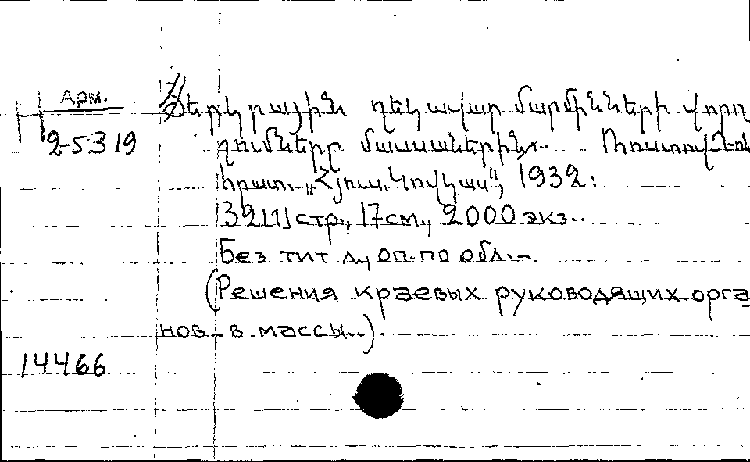 Арм.
2-5319
Յերկրային ղեկավար մարմինների վորո
շումները մասսաներին. Ռոստով-Դոն
հրատ. „Հյուս. Կովկաս", 1932:
32[1] стр., 17см., 2000 экз.
Без тит л., оп. по обл.
(Решения краевых руководящих орга
нов в массы.).
14466